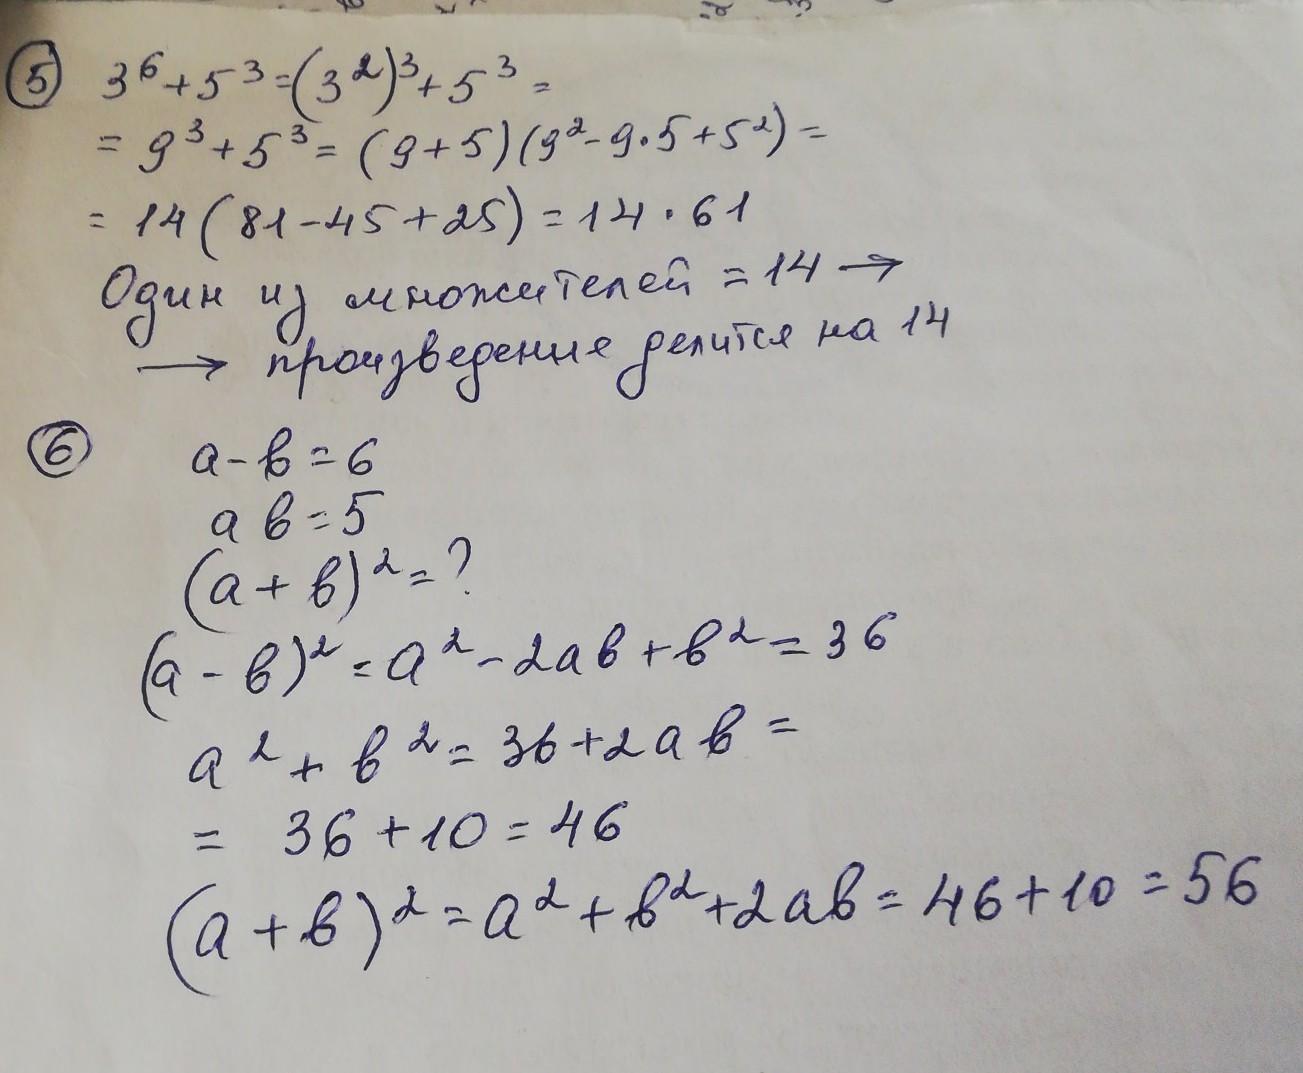 ⑤ 3⁶+5³=(3²)³+5³=
= 9³+5³=(9+5)(9²-9·5+5²)=
= 14(81-45+25)=14·61
Один из множителей =14 →
→ произведение делится на 14
⑥ а-в=6
ав=5
(а+в)²=?
(а-в)²=а²-2ав+в²=36
а²+в²=36+2ав=
= 36+10=46
(а+в)²=а²+в²+2ав=46+10=56